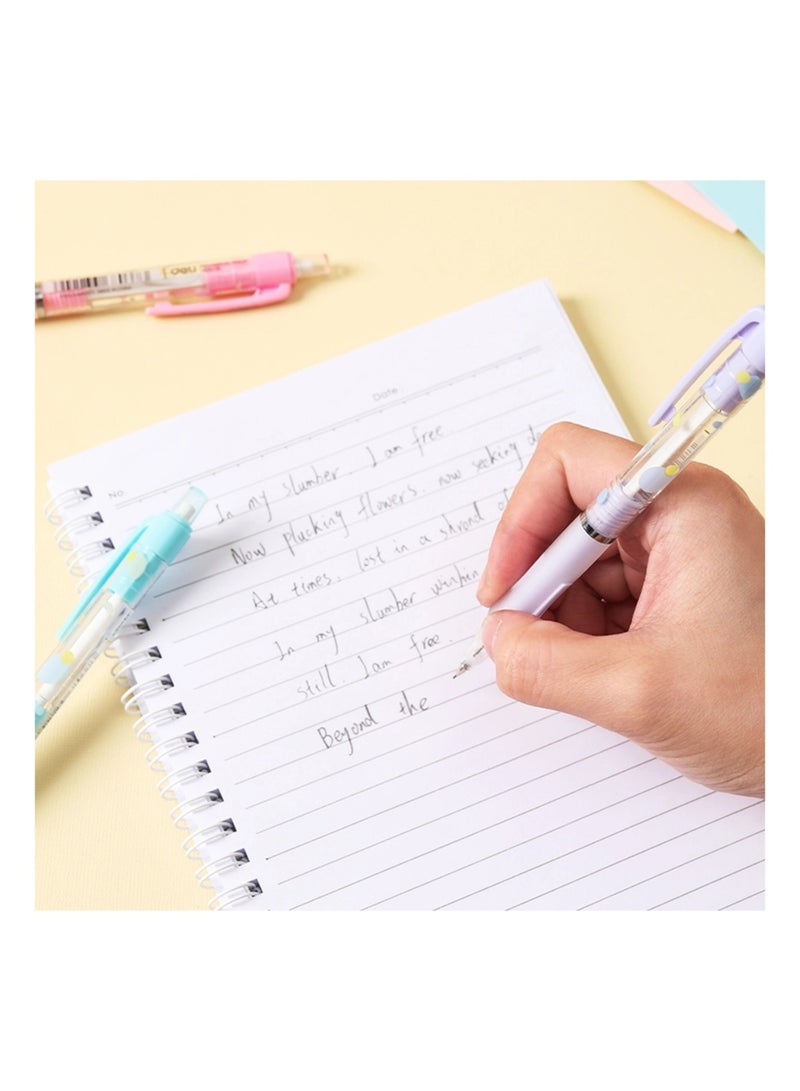 deli
Date
No
In my slumber. I am free
Now plucking flowers. now seeking
At times. lost in a shroud
In my slumber within
still. I am free.
Beyond the